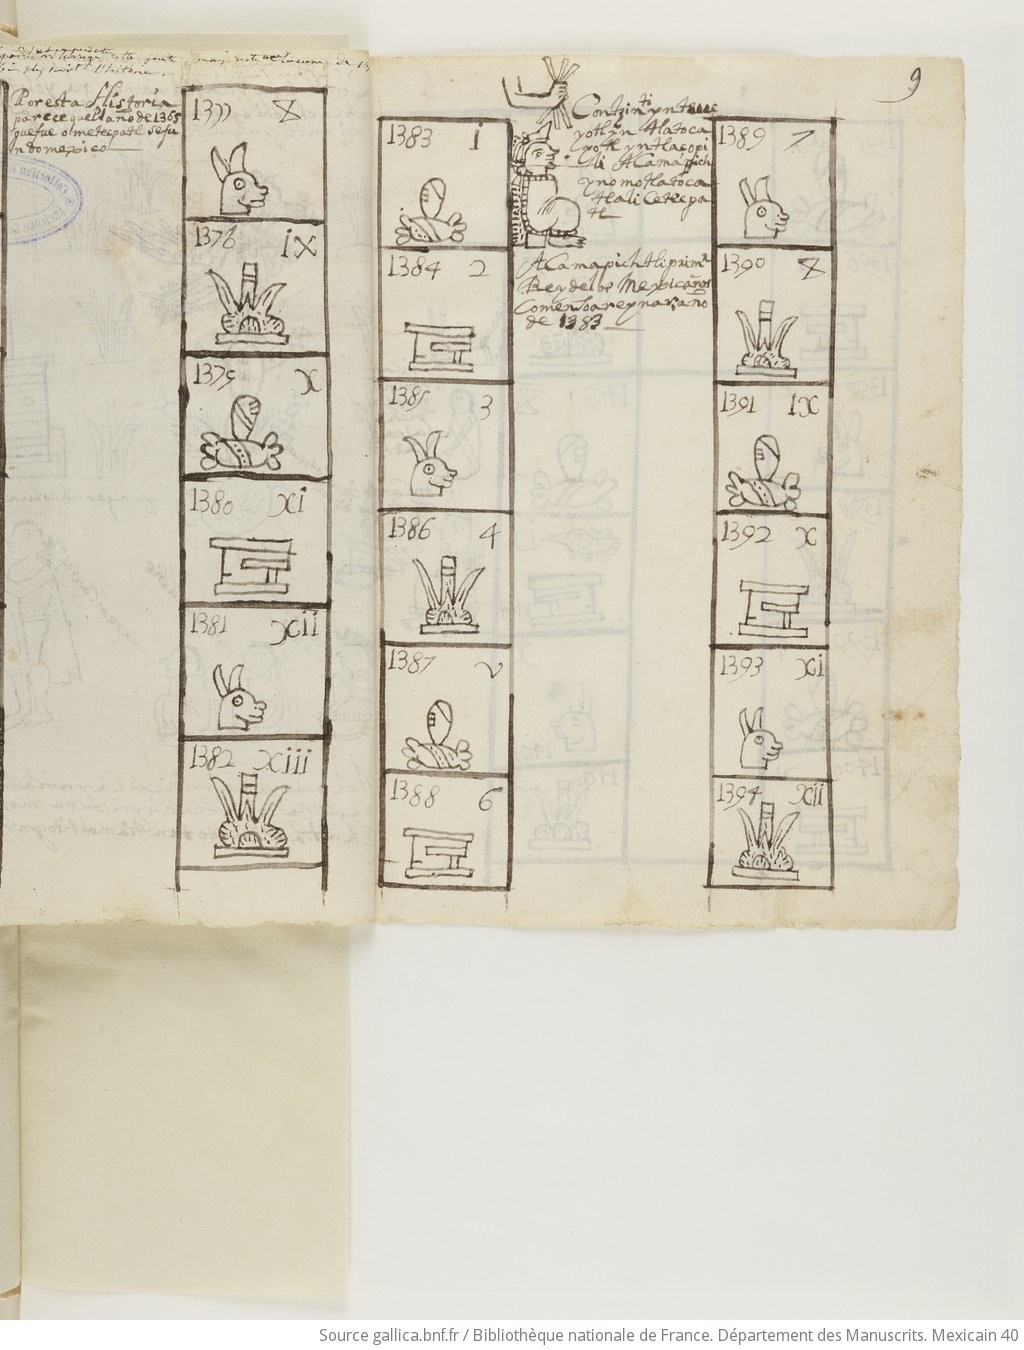 9
Por esta Historia
parece quel año de 1365
que fue ometecpatl se fu
ndo mexico
1377 8
1378 ix
1379 x
1380 xi
1381 xii
1382 xiii
1383 i
1384 2
1385 3
1386 4
1387 v
1388 6
yotl yn tlatoca
yotl yn tlacopi
li Acamapich
ynomotlatoca
tlali Cetecpa
tl
Acamapichtli prim
Rey de los Mexicanos
Comensoa reynar año
de 1383
1389 7
1390 8
1391 ix
1392 x
1393 xi
1394 xii
Source gallica.bnf.fr / Bibliothèque nationale de France. Département des Manuscrits. Mexicain 40